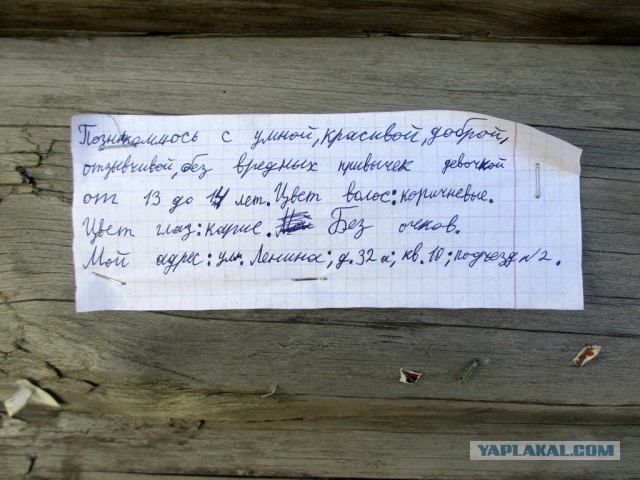 Познакомлюсь с умной, красивой, доброй,
отзывчивой, без вредных привычек девочкой
от 13 до 14 лет. Цвет волос: коричневые.
Цвет глаз: карие. Без очков.
Мой адрес: ул. Ленина; д. 32а; кв. 10; подъезд №2.
YAPLAKAL.COM